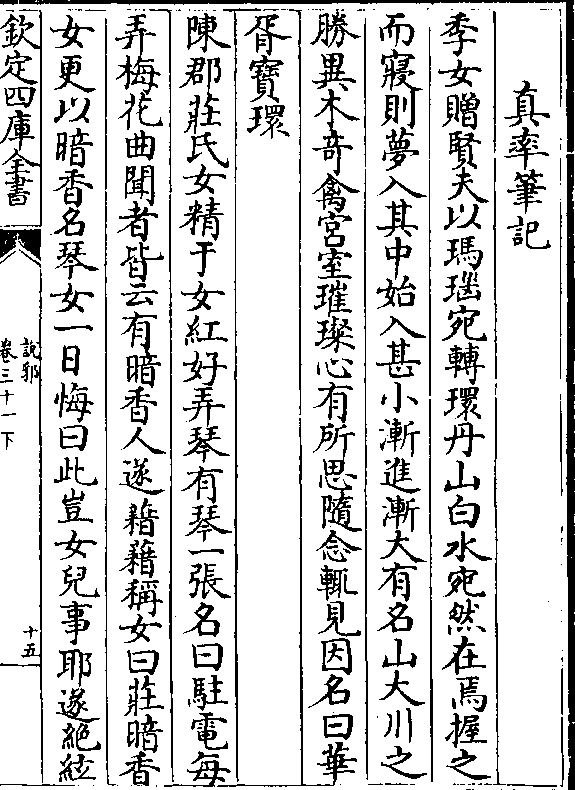 真率筆記
季女贈賢夫以瑪瑙宛轉環丹山白水宛然在焉握之
而寢則夢入其中始入甚小漸進漸大有名山大川之
勝異木奇禽宮室璀璨心有所思隨念輒見因名曰華
胥寶環
陳郡莊氏女精于女紅好弄琴有琴一張名曰駐電每
弄梅花曲聞者皆云有暗香人遂藉藉稱女曰莊暗香
女更以暗香名琴女一日悔曰此豈女兒事耶遂絶絃
欽定四庫全書
說郛
卷三十一下
十五